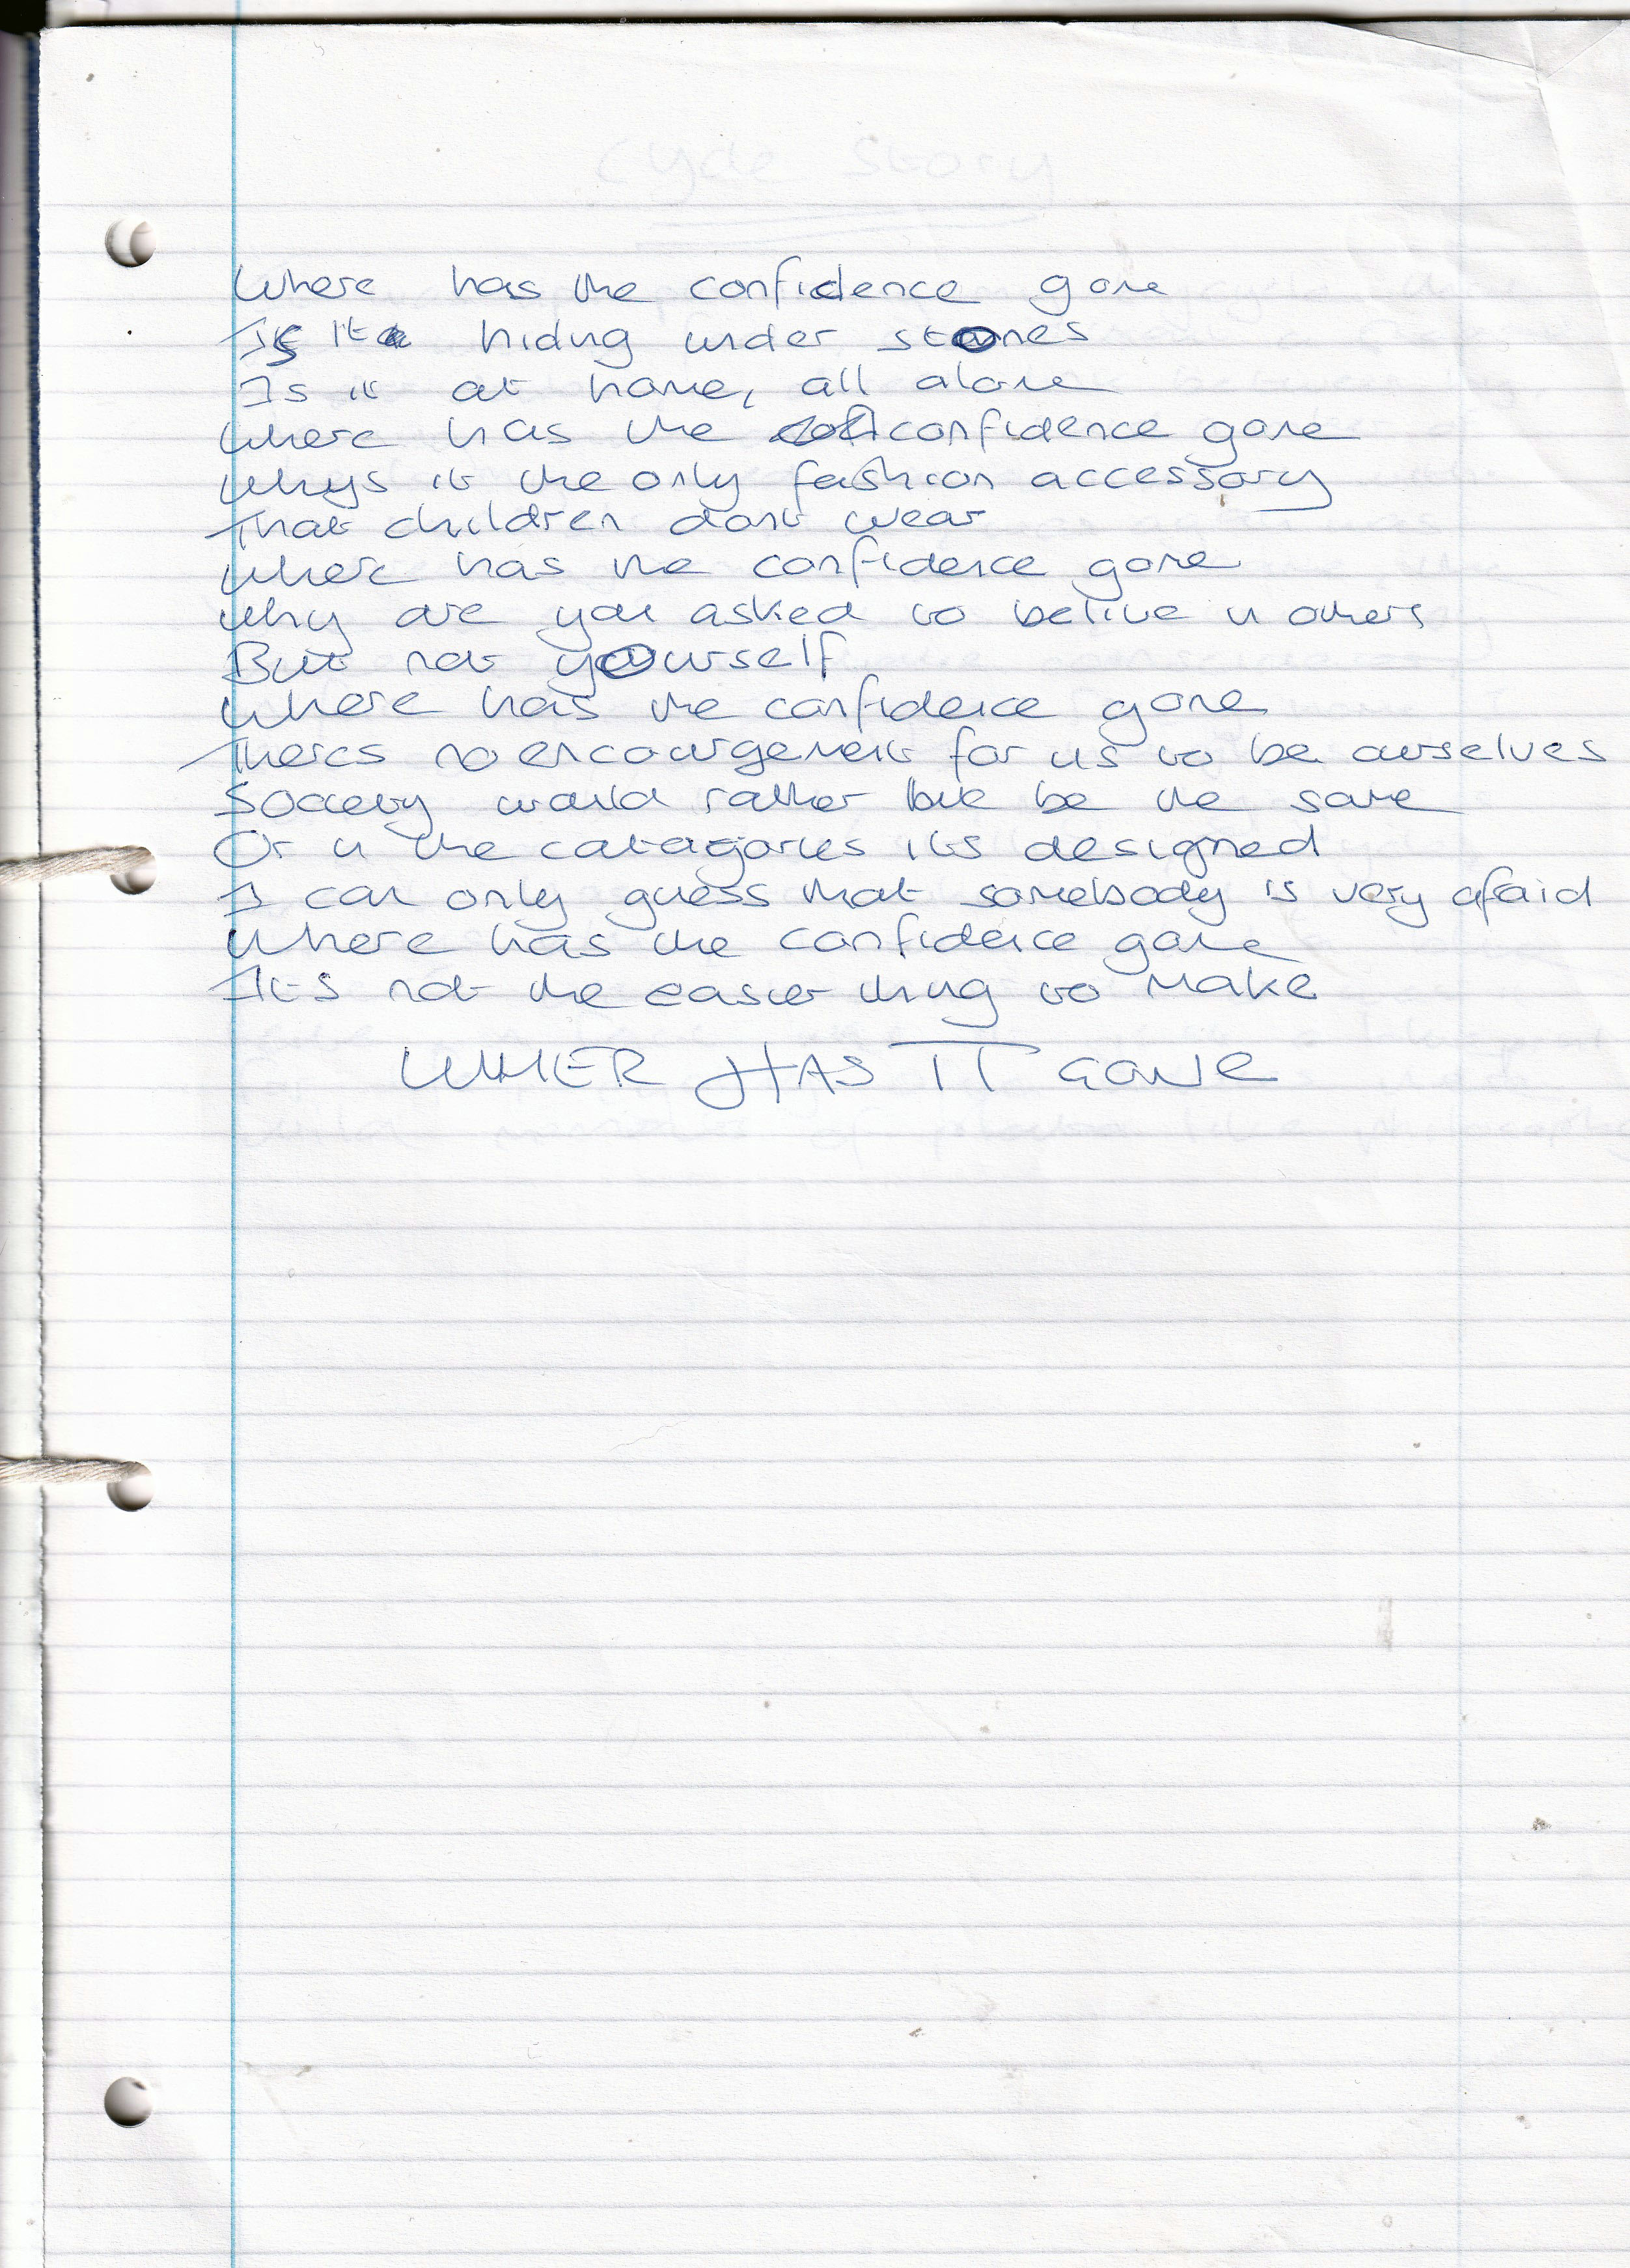 Cycle Story
Where has the confidence gone
Is it hiding under stones
Is it at home, all alone
Where has the confidence gone
Whys it the only fashion accessory
That children dont wear
Where has the confidence gone
Why are you asked to belive in others
But not yourself
Where has the confidence gone
Theres no encourgement for us to be ourselves
Society would rather be the same
Or in the catagories its designed
I can only guess that somebody is very afaid
Where has the confidence gone
It's not the easier thing to make
WHER HAS IT GONE